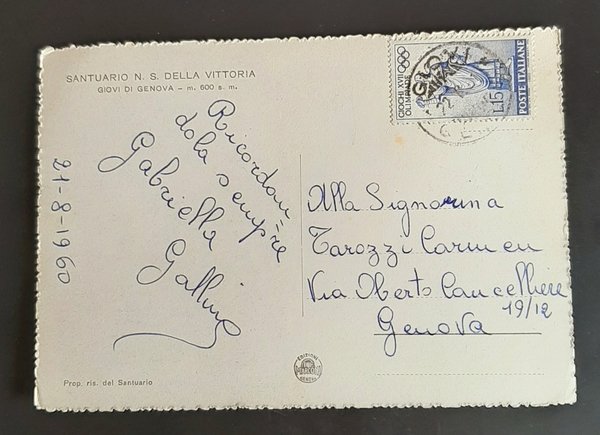 SANTUARIO N. S. DELLA VITTORIA
GIOVI DI GENOVA – m. 600 s. m.
Ricordan=
dola sempre
Gabriella
Gallino
21-8-1960
GIOCHI XVII OLIMPIADE
L.15
POSTE ITALIANE
GIOVI
Alla Signorina
Tarozzi Carmen
Via Oberto Cancelliere
19/12
Genova
EDIZIONI
GENOVA
Prop. ris. del Santuario